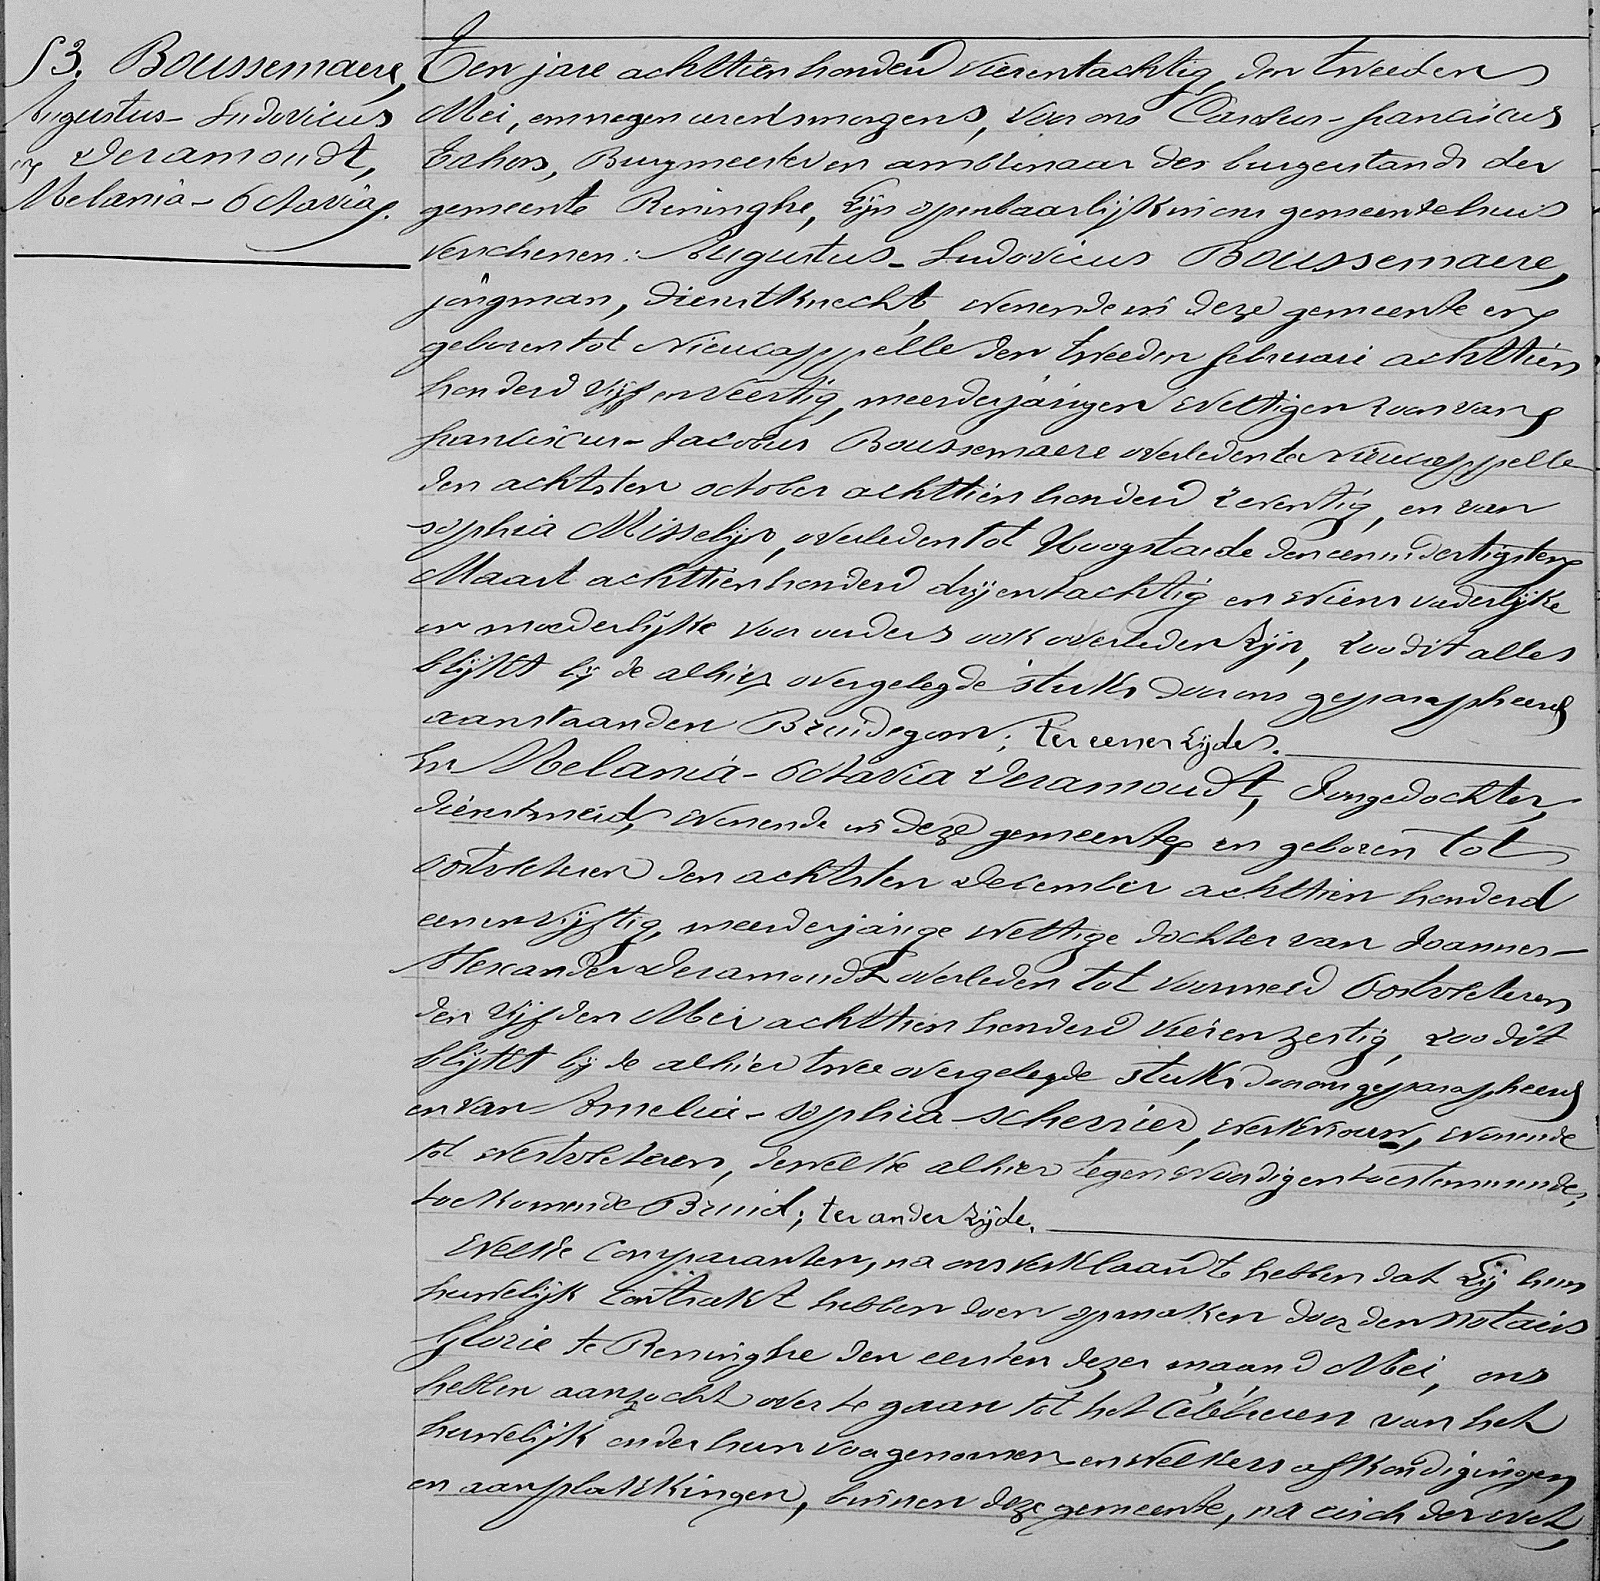 §3. Boussemaere,
Augustus-Ludovicus
en Deramoudt,
Melania-Octavia.
Ten jare achttien honderd vierentachtig, den tweeden
Mei, om negen uren 'smorgens, voor ons Carolus-Franciscus
Burgmeester en ambtenaar des burgerstands der
gemeente Reninghe, zijn openbaarlijk in ons gemeentehuis
verschenen: Augustus-Ludovicus Boussemaere,
jongman, dienstknecht, wonende in deze gemeente en
geboren tot Nieucappelle den tweeden februari achttien
honderd vijf en veertig, meerderjarigen wettigen zoon van
Franciscus-Jacobus Boussemaere overleden te Nieucappelle
den achtsten october achttien honderd zeventig, en van
Sophia Misselijn, overleden tot Hoogstaede den een en dertigsten
Maart achttien honderd drijentachtig en wiens vaderlijke
en moederlijke voorouders ook overleden zijn, zoo dit alles
blijkt bij de alhier overgelegde stuks door ons geparapheerd
aanstaanden Bruidegom; ter eener zijde.
En Melania-Octavia Deramoudt, Jongedochter,
dienstmeid, wonende in deze gemeente en geboren tot
Oostvleteren den achtsten december achttien honderd
eenenvijftig, meerderjarige wettige dochter van Joannes-
Alexander Deramoudt overleden tot voormeld Oostvleteren
den vijfden Mei achttien honderd vierenzestig, zoo dit
blijkt bij de alhier twee overgelegde stuks door ons geparapheerd
en van Amelia-Sophia werkvrouw, wonende
tot Westvleteren, dewelke alhier tegenwoordig en toestemmende,
toekomende Bruid; ter ander zijde.
Welke Comparanten, na ons verklaard te hebben dat zij hun
huwelijk contrakt hebben doen opmaken door den notaris
Florie te Reninghe den eersten dezer maand Mei, ons
hebben aanzocht over te gaan tot het celebreren van het
huwelijk onder hun voorgenomen en welkers afkondigingen
en aanplakkingen, binnen deze gemeente, na eisch der wet,